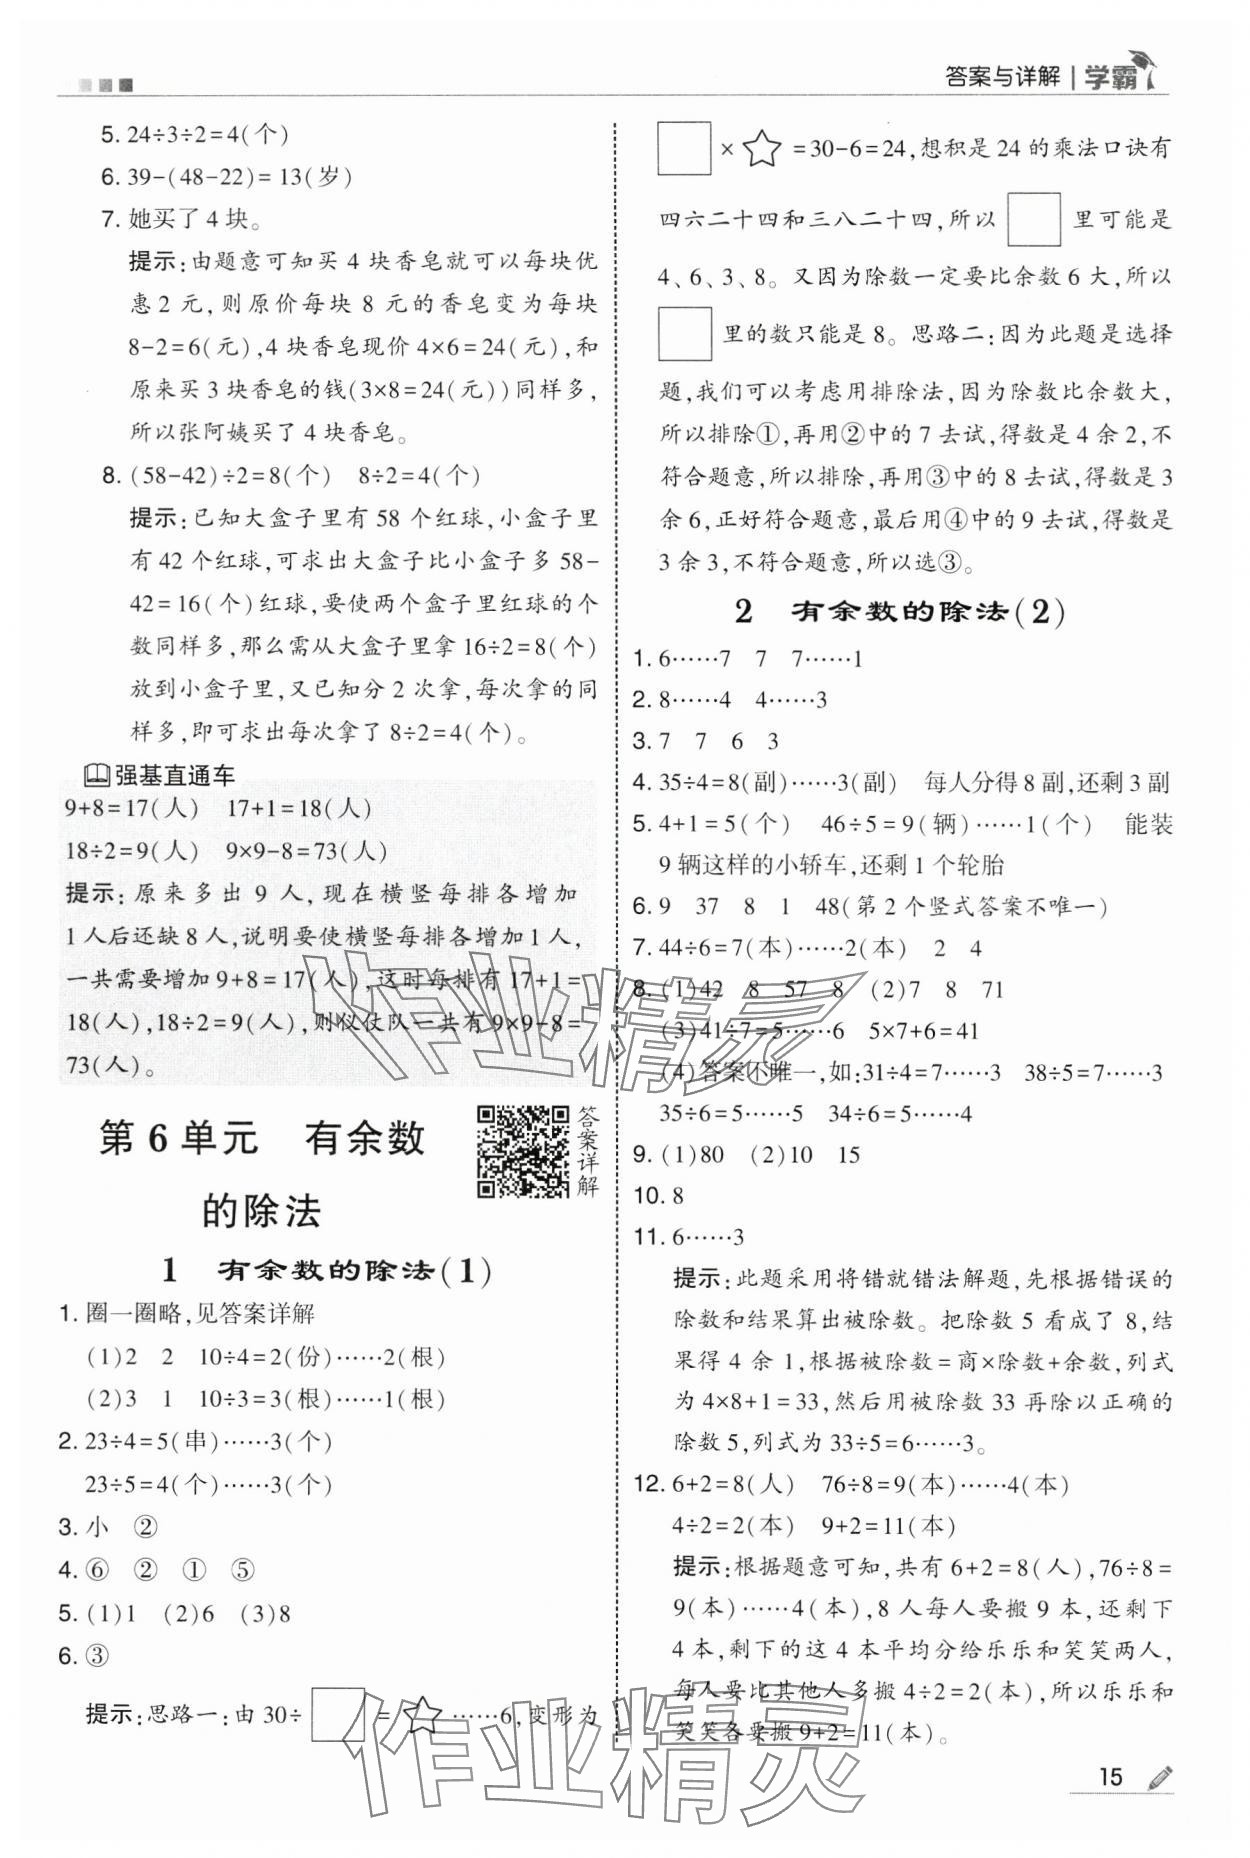 答案与详解 学霸
5. 24÷3÷2=4(个)
6. 39-(48-22)=13(岁)
7. 她买了4块。
提示:由题意可知买4块香皂就可以每块优
惠2元,则原价每块8元的香皂变为每块
8-2=6(元),4块香皂现价4×6=24(元),和
原来买3块香皂的钱(3×8=24(元))同样多,
所以张阿姨买了4块香皂。
8. (58-42)÷2=8(个) 8÷2=4(个)
提示:已知大盒子里有58个红球,小盒子里
有42个红球,可求出大盒子比小盒子多58-
42=16(个)红球,要使两个盒子里红球的个
数同样多,那么需从大盒子里拿16÷2=8(个)
放到小盒子里,又已知分2次拿,每次拿的同
样多,即可求出每次拿了8÷2=4(个)。
强基直通车
9+8=17(人) 17+1=18(人)
18÷2=9(人) 9×9-8=73(人)
提示:原来多出9人,现在横竖每排各增加
1人后还缺8人,说明要使横竖每排各增加1人,
一共需要增加9+8=17(人),这时每排有17+1=
18(人),18÷2=9(人),则仪仗队一共有9×9-8=
73(人)。
第6单元 有余数
的除法
答案详解
1 有余数的除法(1)
1. 圈一圈略,见答案详解
(1)2 2 10÷4=2(份)……2(根)
(2)3 1 10÷3=3(根)……1(根)
2. 23÷4=5(串)……3(个)
23÷5=4(个)……3(个)
3. 小 ②
4. ⑥ ② ① ⑤
5. (1)1 (2)6 (3)8
6. ③
提示:思路一:由30÷□=☆……6,变形为
□×☆=30-6=24,想积是24的乘法口诀有
四六二十四和三八二十四,所以□里可能是
4、6、3、8。又因为除数一定要比余数6大,所以
□里的数只能是8。思路二:因为此题是选择
题,我们可以考虑用排除法,因为除数比余数大,
所以排除①,再用②中的7去试,得数是4余2,不
符合题意,所以排除,再用③中的8去试,得数是3
余6,正好符合题意,最后用④中的9去试,得数是
3余3,不符合题意,所以选③。
2 有余数的除法(2)
1. 6……7 7 7……1
2. 8……4 4……3
3. 7 7 6 3
4. 35÷4=8(副)……3(副) 每人分得8副,还剩3副
5. 4+1=5(个) 46÷5=9(辆)……1(个) 能装
9辆这样的小轿车,还剩1个轮胎
6. 9 37 8 1 48(第2个竖式答案不唯一)
7. 44÷6=7(本)……2(本) 2 4
8. (1)42 8 57 8 (2)7 8 71
(3)41÷7=5……6 5×7+6=41
(4)答案不唯一,如:31÷4=7……3 38÷5=7……3
35÷6=5……5 34÷6=5……4
9. (1)80 (2)10 15
10. 8
11. 6……3
提示:此题采用将错就错法解题,先根据错误的
除数和结果算出被除数。把除数5看成了8,结
果得4余1,根据被除数=商×除数+余数,列式
为4×8+1=33,然后用被除数33再除以正确的
除数5,列式为33÷5=6……3。
12. 6+2=8(人) 76÷8=9(本)……4(本)
4÷2=2(本) 9+2=11(本)
提示:根据题意可知,共有6+2=8(人),76÷8=
9(本)……4(本),8人每人要搬9本,还剩下
4本,剩下的这4本平均分给乐乐和笑笑两人,
每人要比其他人多搬4÷2=2(本),所以乐乐和
笑笑各要搬9+2=11(本)。
作业精灵
作业精灵
15